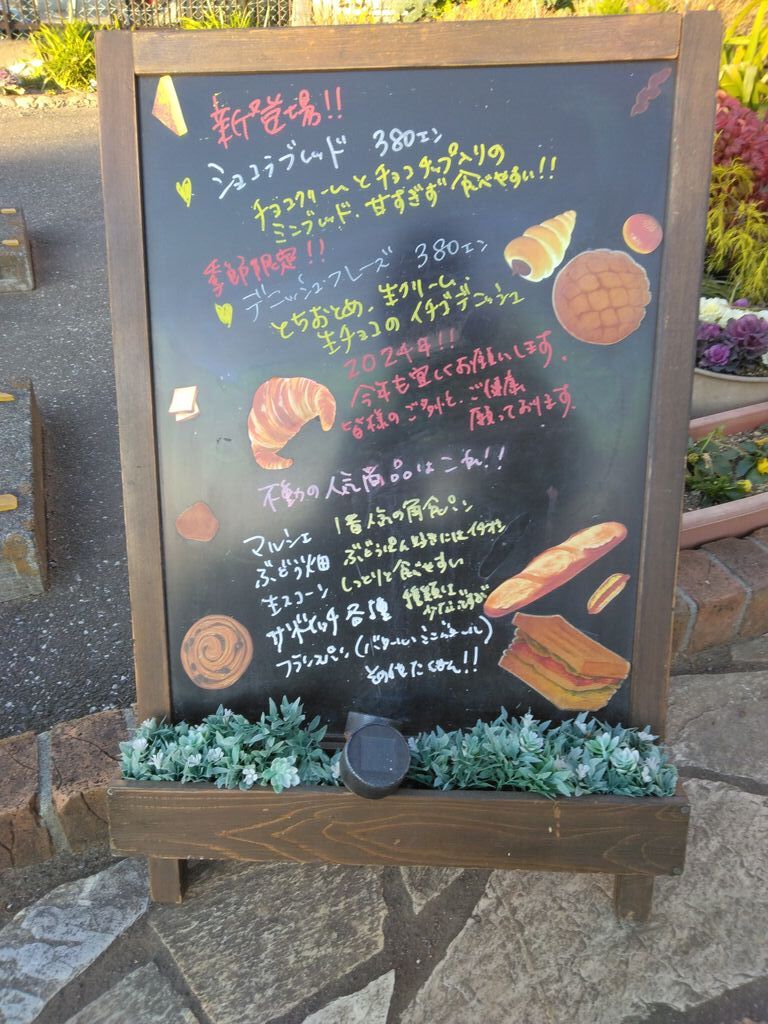 新登場!!
ショコラブレッド 380エン
チョコクリームとチョコチップ入りの
ミニブレッド、甘すぎず食べやすい!!
季節限定!!
デニッシュ・フレーズ 380エン
とちおとめ、生クリーム、
生チョコのイチゴデニッシュ
2024年!!
今年も宜しくお願いします。
皆様のご多幸と、ご健康
願っております。
不動の人気商品はこれ!!
マルシェ 1番人気の角食パン
ぶどう畑 ぶどうぱん好きにはイチオシ
生スコーン しっとりと食べやすい
サンドイッチ各種 種類は
フランスパン(バタール・ミニバタール)
その他たくさん!!